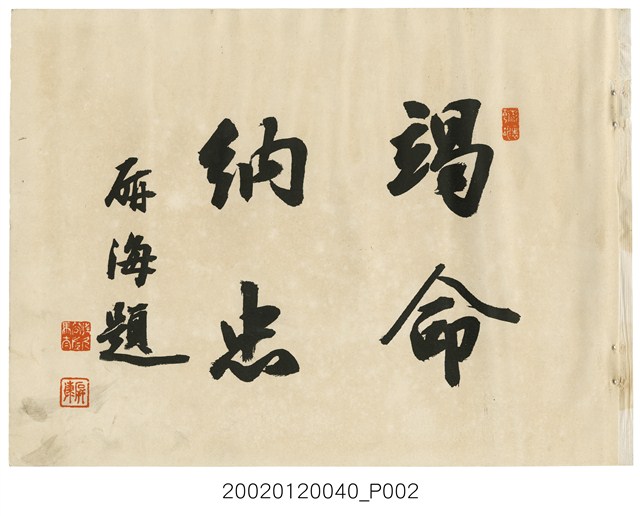 竭命
納忠
屏海題
20020120040_P002